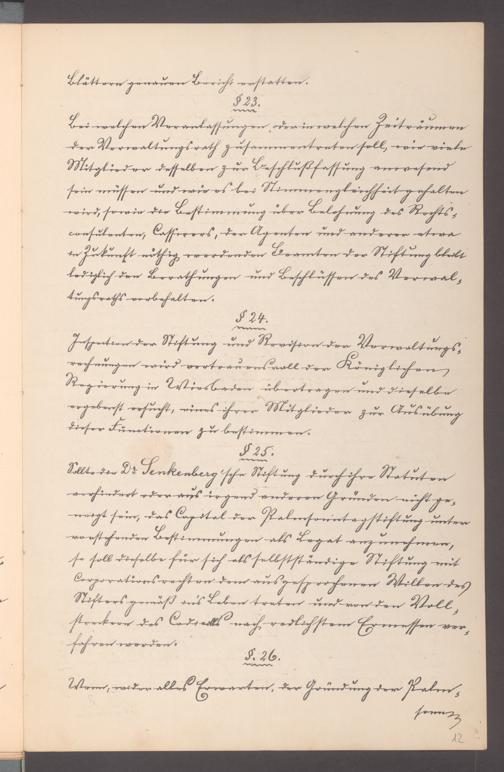 Blättern genauen Bericht erstatten.
§ 23.
Bei welchen Veranlassungen, oder in welchen Zeiträumen
der Verwaltungsrath zusammentreten soll, wie viele
Mitglieder desselben zur Beschlußfassung anwesend
sein müssen und wie es bei Stimmengleichheit gehalten
wird, sowie die Bestimmung über Belohnung des Rechts-
consulenten, Cassirers, der Agenten und anderer etwa
in Zukunft nöthig werdenden Beamten der Stiftung bleibt
lediglich den Berathungen und Beschlüssen des Verwal-
tungsraths vorbehalten.
§ 24.
Inspection der Stiftung und Revision der Verwaltungs-
rechnungen wird vertrauensvoll der Königlichen
Regierung in Wiesbaden übertragen und dieselbe
ergebenst ersucht, eines ihrer Mitglieder zur Ausübung
dieser Functionen zu bestimmen.
§ 25.
Sollte die Dr. Senkenberg'sche Stiftung durch ihre Statuten
verhindert oder aus irgend anderen Gründen nicht ge-
neigt sein, das Capital der Palmsonntagstiftung unter
vorstehenden Bestimmungen als Legat anzunehmen,
so soll dieselbe für sich als selbstständige Stiftung mit
Corporationsrechten dem ausgesprochenen Willen des
Stifters gemäß ins Leben treten und von den Voll-
streckern des Codicills nach redlichstem Ermessen ver-
fahren werden.
§. 26.
Wenn, wider alles Erwarten, der Gründung der Palm-
sonn
12